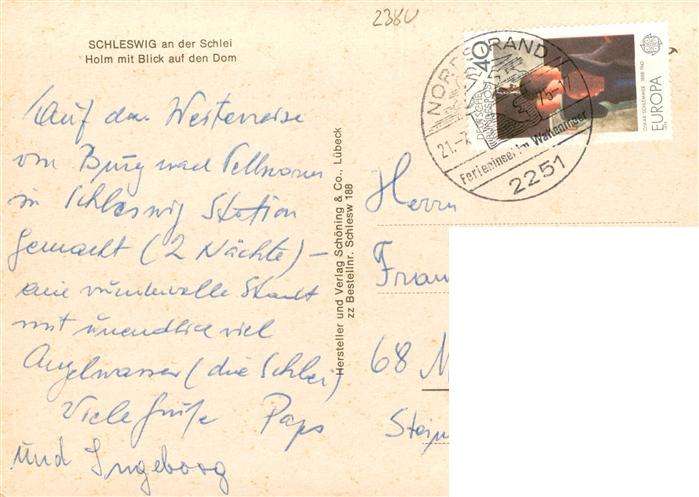 2380
SCHLESWIG an der Schlei
Holm mit Blick auf den Dom
Auf der Weiterreise
von Burg nach Pellworm
in Schleswig Station
gemacht (2 Nächte) –
eine wundervolle Stadt
mit unendlich viel
Angelwasser (die Schlei)
Viele Grüße Paps
und Ingeborg
Hersteller und Verlag Schöning & Co., Lübeck
zz Bestellnr. Schlesw 188
NORDSTRAND
21.-7.75-17
Ferieninsel im Wattenmeer
2251
40
DEUTSCHE BUNDESPOST
EUROPA
Herrn
Fran
68 M